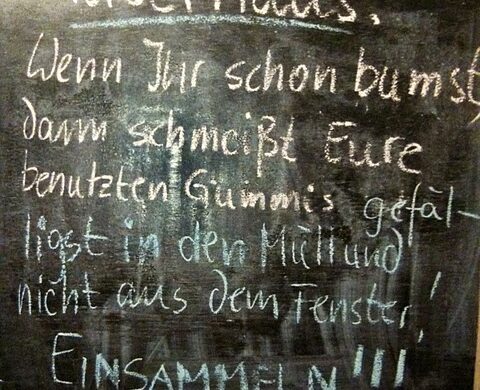 Haus.
Wenn Ihr schon bumst
dann schmeißt Eure
benutzten Gummis gefäl-
ligst in den Müll und
nicht aus dem Fenster!
EINSAMMELN!!!